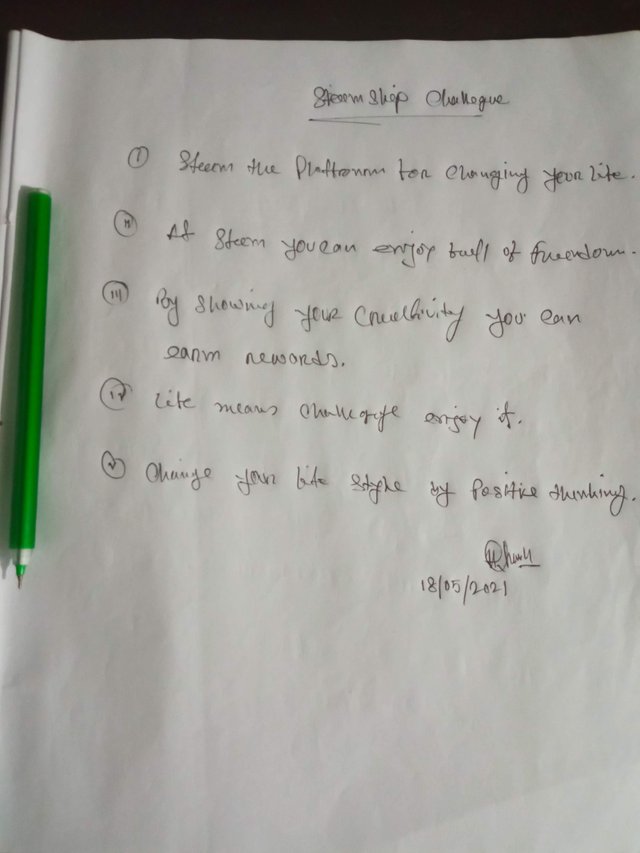 Steem Skip Challegue
(i) Steem the Platfromm for changing your life.
(ii) At Steem you can enjoy full of freendom.
(iii) By showing your Creativity you can
earn rewords.
(iv) Life means challenge enjoy it.
(v) Change your life style by Positive thinking.
18/05/2021